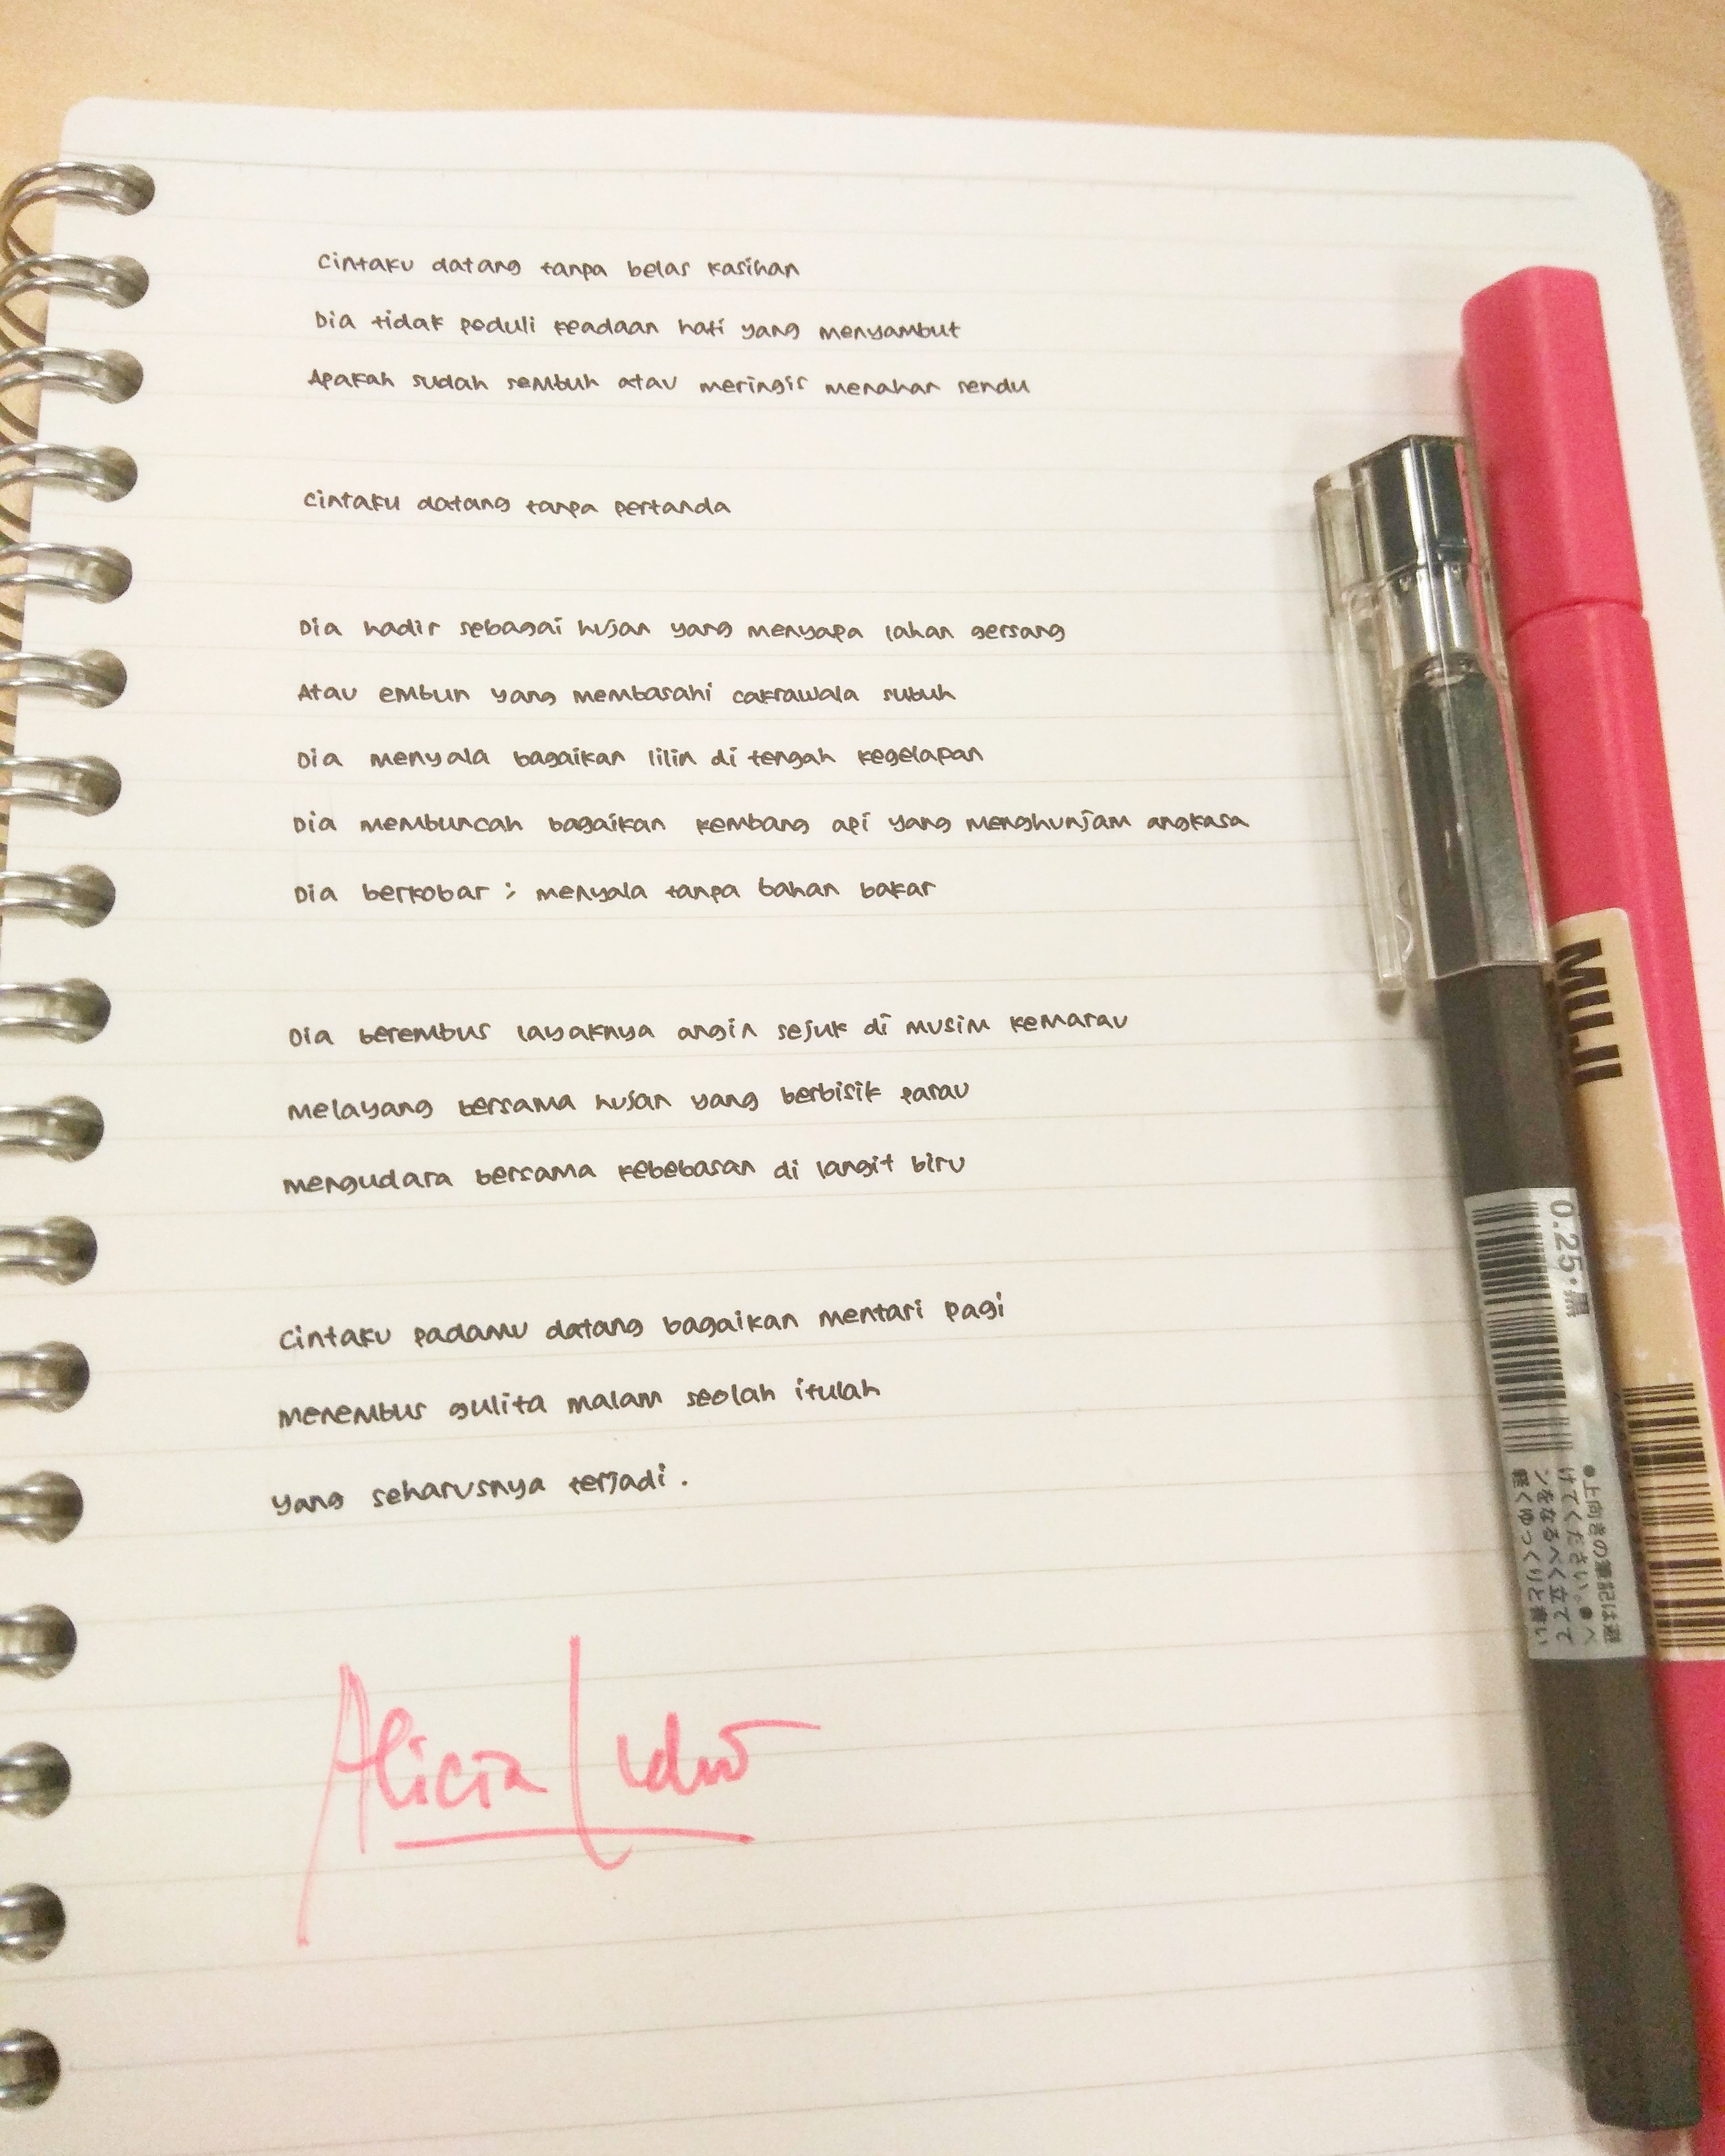 Cintaku datang tanpa belas kasihan
Dia tidak peduli keadaan hati yang menyambut
Apakah sudah sembuh atau meringis menahan sendu
Cintaku datang tanpa pertanda
Dia hadir sebagai hujan yang menyapa lahan gersang
Atau embun yang membasahi cakrawala subuh
Dia menyala bagaikan lilin di tengah kegelapan
Dia membuncah bagaikan kembang api yang menghunjam angkasa
Dia berkobar ; menyala tanpa bahan bakar
Dia berembus layaknya angin sejuk di musim kemarau
Melayang bersama hujan yang berbisik parau
Mengudara bersama kebebasan di langit biru
Cintaku padamu datang bagaikan mentari pagi
Menembus gulita malam seolah itulah
yang seharusnya terjadi.
Alicia
MUJI
0.25・黒
●上向きの筆記は避
けてください。●ペ
ンをなるべく立てて
軽くゆっくりと書い